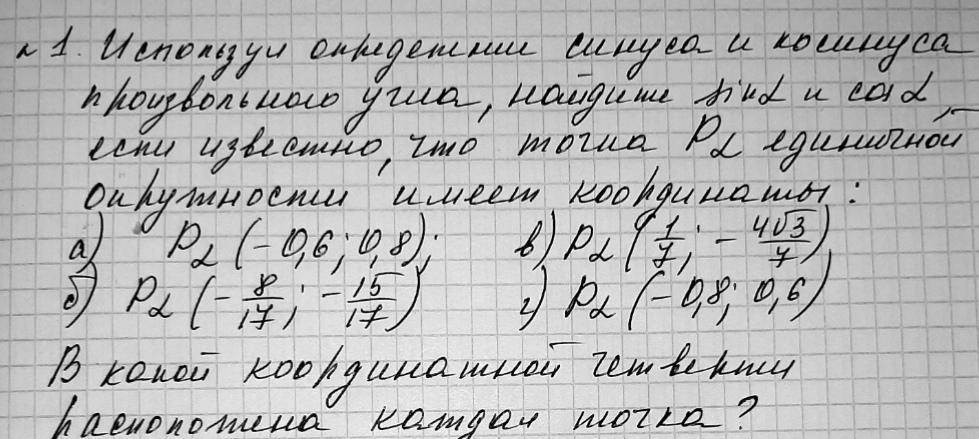 №1. Используя определение синуса и косинуса
произвольного угла, найдите sinα и cosα,
если известно, что точка Pα единичной
окружности имеет координаты:
а) Pα (-0,6; 0,8); в) Pα (1/7; -4√3/7)
б) Pα (-8/17; -15/17) г) Pα (-0,8; 0,6)
В какой координатной четверти
расположена каждая точка?